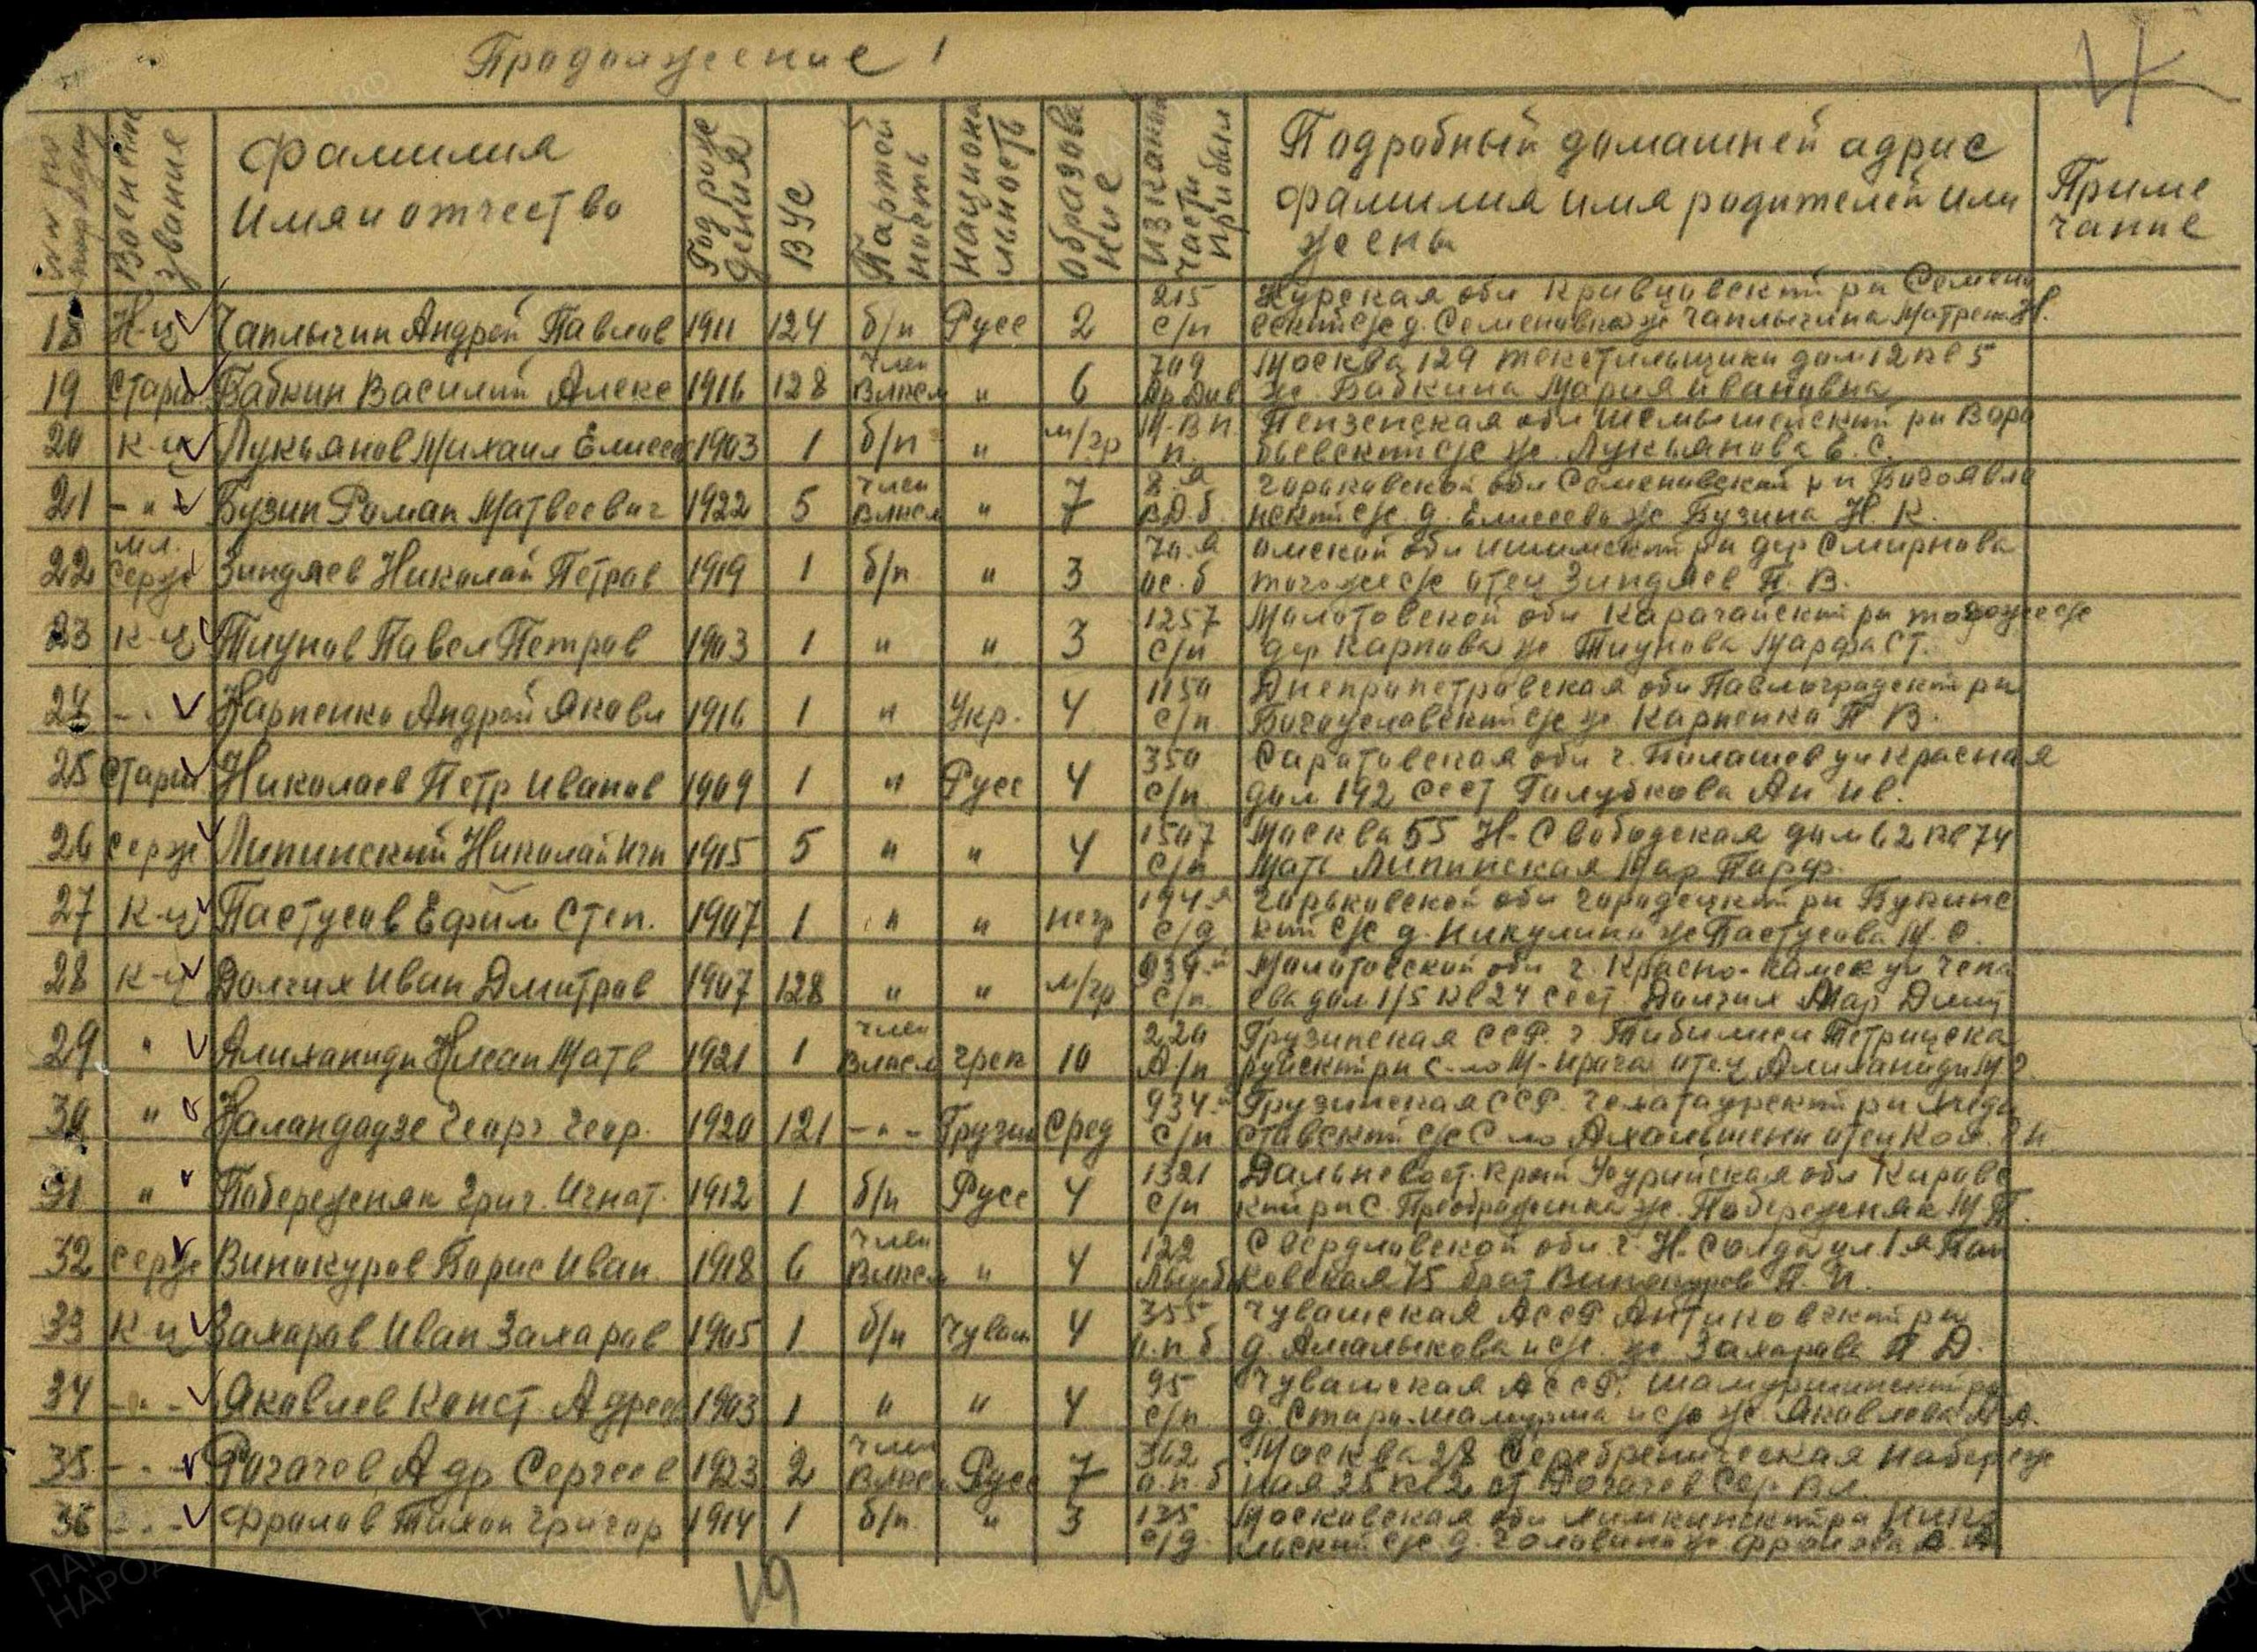 Продолжение 1
№№ по порядку
Военное звание
Фамилия Имя и отчество
Год рождения
ВУС
Партейность
Национальность
Образование
Из какой части прибыл
Подробный домашней адрис фамилия имя родителей или жены
Приме чание
18 К-ц Чаплыгин Андрей Павлов 1911 124 б/п Русс 2 215 с/п Курская обл Кривцовский рн Семено
вский с/с д. Семеновка ж Чаплыгина Матрена Н.
19 Старш Бабкин Василий Алекс 1916 128 Член Влксм " 6 709 Москва 129 текстильщики дом 12 кв 5
ж. Бабкина Мария Ивановна
20 К-ц Лукьянов Михаил Елисе 1903 1 б/п " м/гр Пензенская обл Шемышейский рн Воро
бьевский с/с ж. Лукьянова Е. С.
21 -"- Бузин Роман Матвеевич 1922 5 Член Влксм " 7 Горьковской обл Семеновский рн Богоявле
нский с/с. д. Елисеево ж Бузина Н. К.
22 Мл. Серж Зиндяев Николай Петров 1919 1 б/п " 3 70.я ос. б Омской обл Ишимский рн дер Смирнова
тогоже с/с отец Зиндяев П. В.
23 К-ц Тиунов Павел Петров 1903 1 " " 3 1257 с/п Молотовской обл Карагайский рн тогоже с/с
дер Карпова ж Тиунова Марфа Ст.
24 -"- Карпенко Андрей Яковл 1916 1 " Укр. 4 1150 с/п Днепропетровская обл Павлоградский рн
Богуславский с/с ж Карпенко П В.
25 Старш Николаев Петр Иванов 1909 1 " Русс 4 350 с/п Саратовская обл г. Балашев ул Красная
дом 192 сест Голубкова Ан Ив.
26 Серж Липинский Николай 1915 5 " " 4 1507 с/п Москва 55 Н-Слободская дом 62 кв 74
Мать Липинская Мар Парф.
27 К-ц Пастусов Ефим Степ. 1907 1 " " негр 194.я с/д Горьковской обл Городецкий рн
кий с/с д. Никулино ж Пастусова М. О.
28 К-ц Долгих Иван Дмитров 1907 128 " " м/гр 934.й с/п Молотовской обл г. Красно-камск ул Чепа
ева дом 1/5 кв 24 сест. Долгих Мар Дмит
29 " Алиханиди Матв 1921 1 Член Влксм грек 10 220 А/п Грузинская ССР. г Тибилиси Тетрицка
ройский рн с-ло отец Алиханиди М
30 " Каландадзе Георг Геор. 1920 121 -"- Грузин Сред 934.й с/п Грузинская ССР. Чохатаурский рн
ставский с/с С ло отец Кал.
31 " Побережняк Григ. Игнат. 1912 1 б/п Русс 4 1321 с/п Дальневост. край Усурийская обл Кировс
кий рн С. Преображенка ж. Побережняк М. П.
32 Серж Винокуров Борис Иван 1918 6 Член Влксм " 4 122 Лыжб Свердловской обл. г. Н. Салда ул 1я Пан
ковская 75 брат Винокуров П. И.
33 К-ц Захаров Иван Захаров 1905 1 б/п Чуваш 4 355 о.п б Чувашская АССР Янтиковский рн
д. Амалыково и с/с. ж Захарова П. Д.
34 -"- Яковлев Конст. Адрее 1903 1 " " 4 95 с/п Чувашская АССР. Шамуршинский рн
д. Старо-Шамурша и с/с ж. Яковлева А.
35 -"- Рогачев Адр Сергеев 1923 2 Член Влксм Русс 7 362 о.п. б Москва 28 Серебреническая набереж
ная 25 кв 2 от Рогачев Сер Вл.
36 -"- Фролов Тихон Григор 1914 1 б/п " 3 135 с/д Московская обл Химкинский рн Нико
льский с/с д. Головино ж. Фролова А. А
19